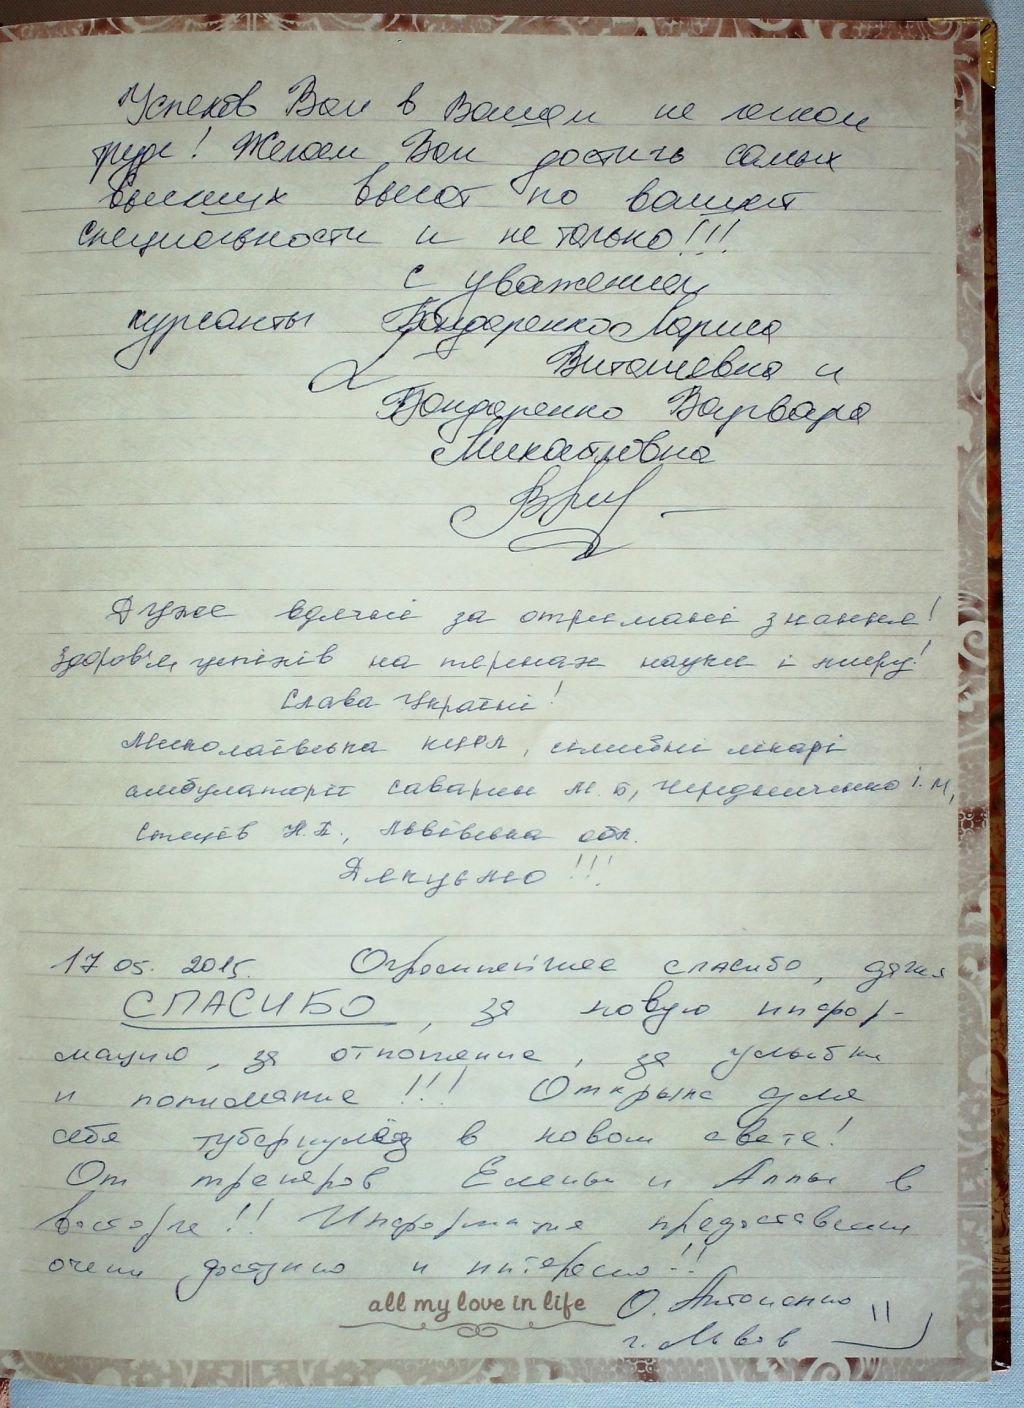 Успехов Вам в Вашем не легком
труде! Желаем Вам достичь самых
высших высот по вашей
специальности и не только!!!
с уважением
курсанты Бондаренко Лариса
Витальевна и
Бондаренко Варвара
Михайловна
Дуже вдячні за отримані знання!
Здоров'я, успіхів на теренах науки і миру!
Слава Україні!
Миколаївська сімейні лікарі
амбулаторії Саварин М. Б, Чередниченко І. М,
Н. П., Львівська обл.
Дякуємо!!!
17 05. 2015. Огромнейшее спасибо, даже
СПАСИБО, за новую инфор-
мацию, за отношение, за улыбки
и понимание!!! Открыла для
себя туберкулёз в новом свете!
От тренеров Елены и Аллы в
восторге!! Информация предоставлена
очень доступно и интересно!!
all my love in life
О. Антоненко
г. Львов